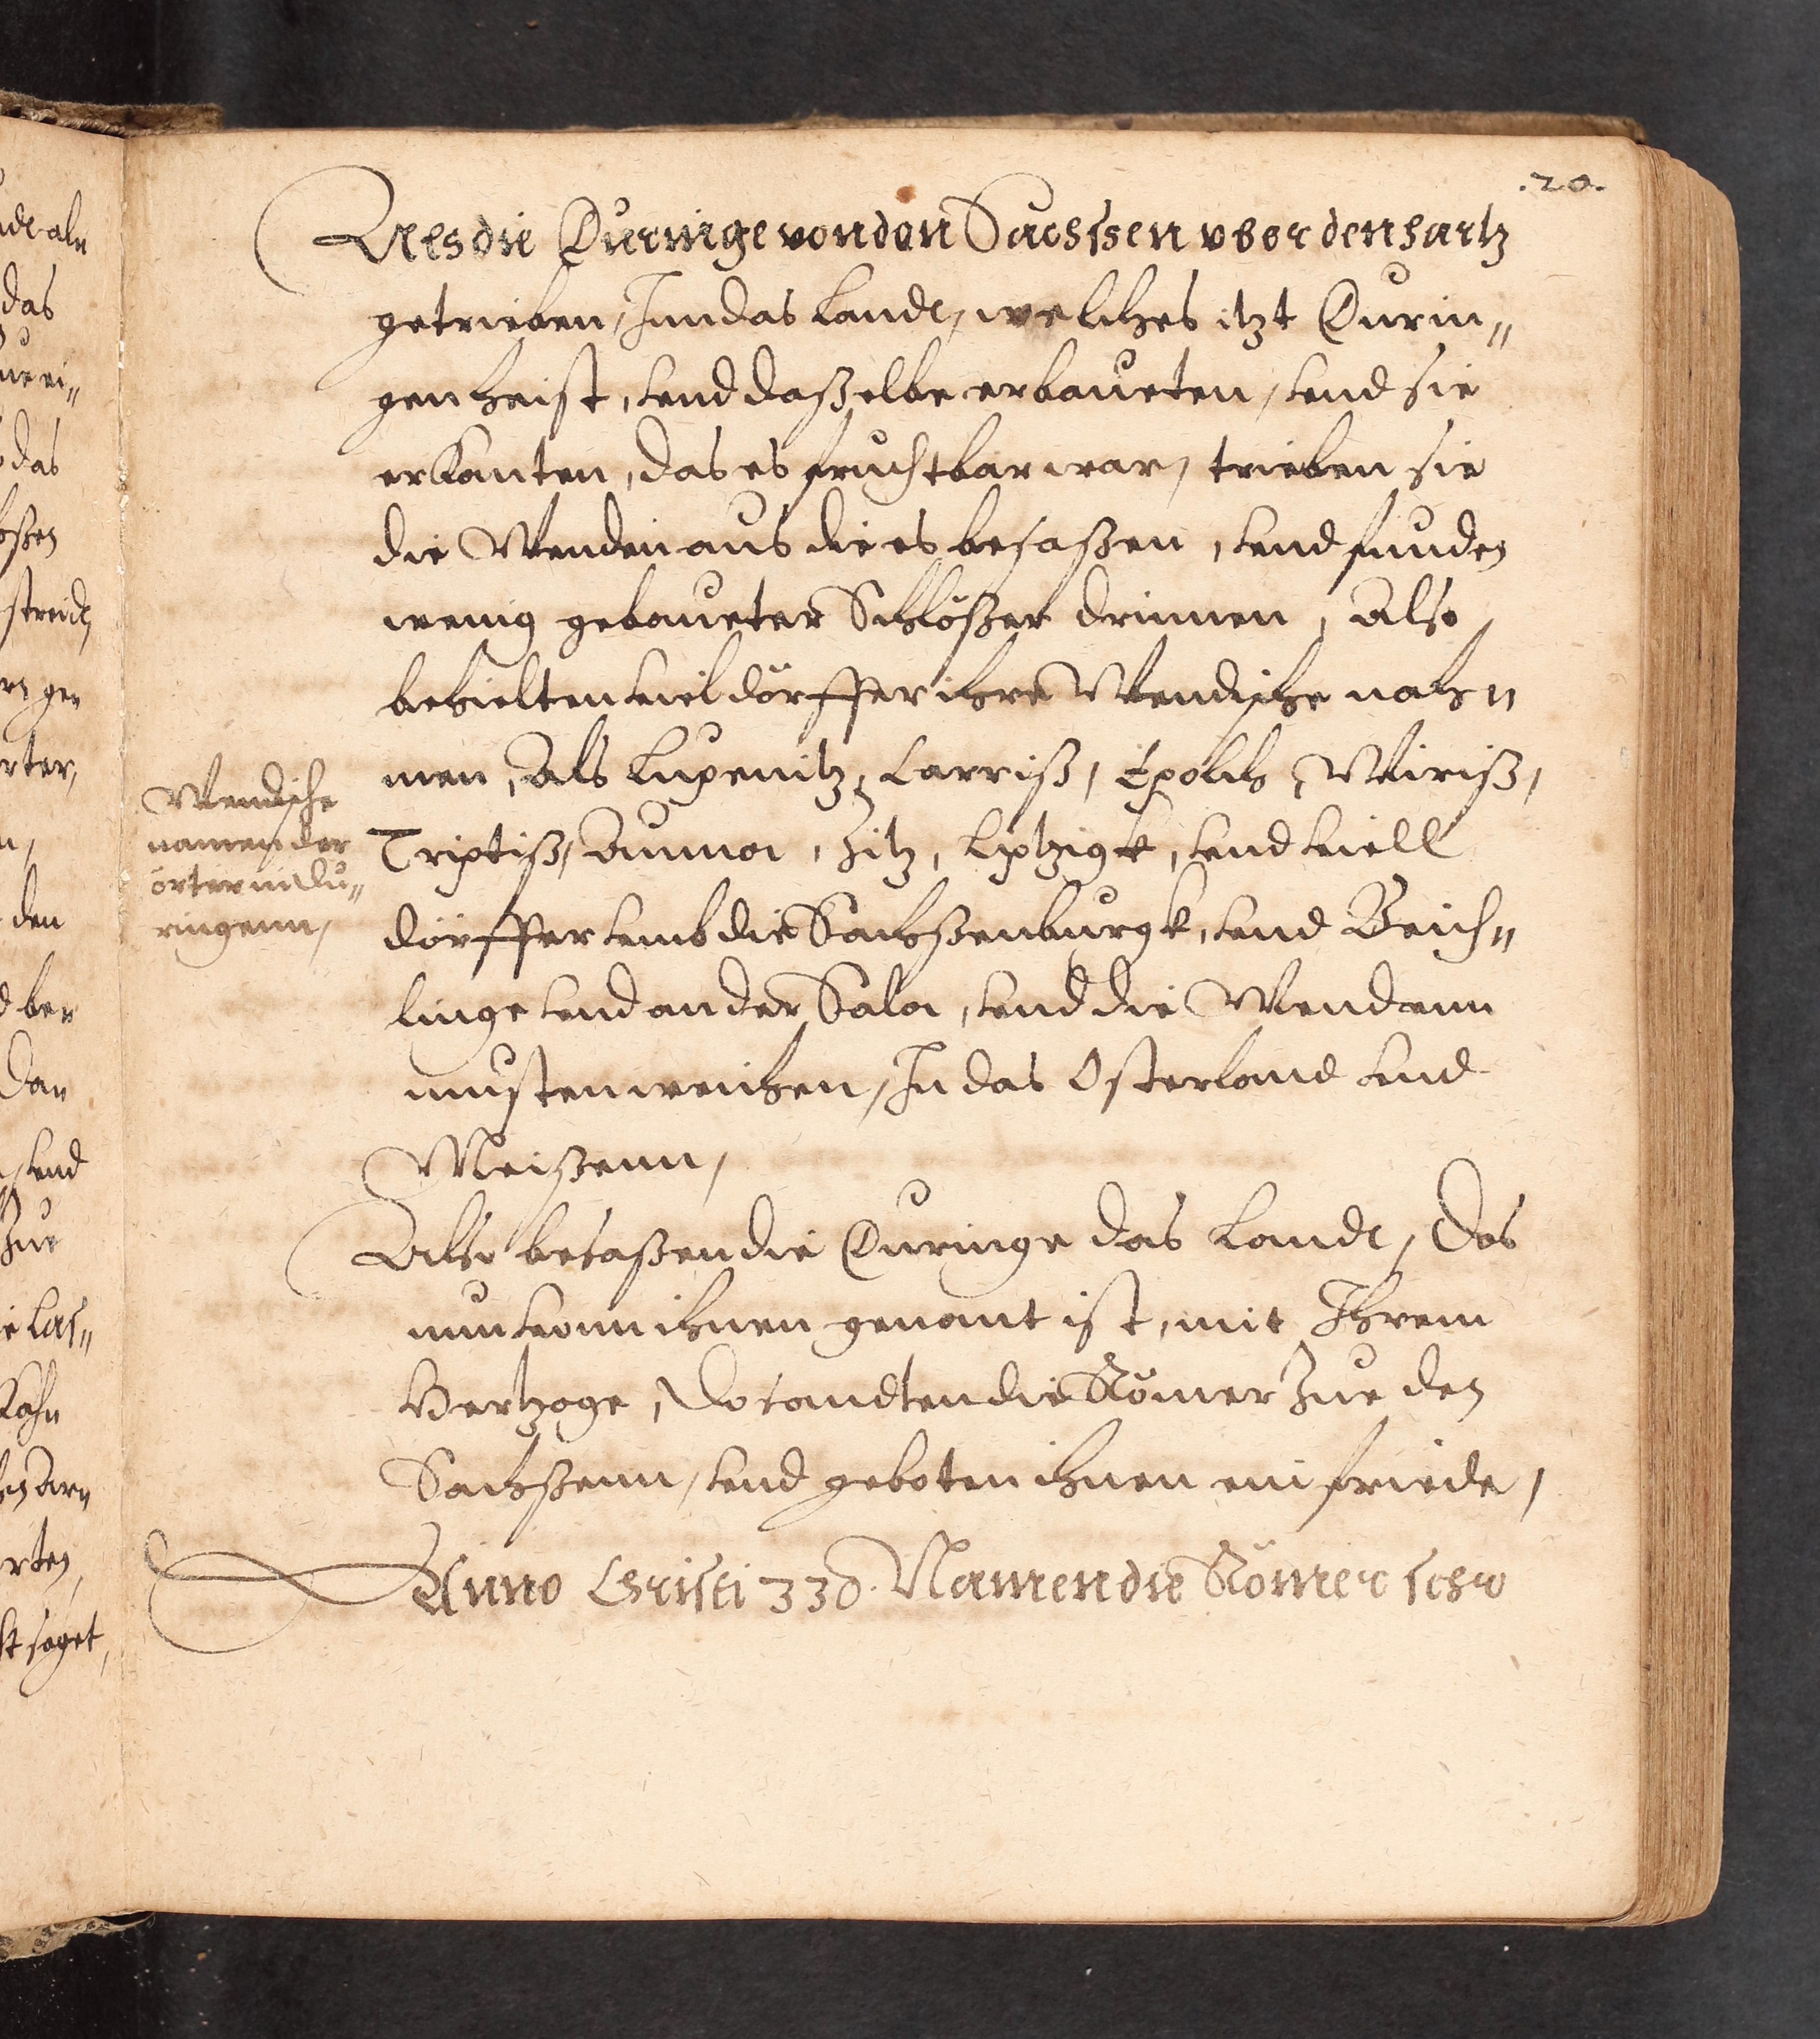 .20.
Als die Duringe von den Sachssen vber den hartz
getrieben, Inn das Landt, welches itzt Durin„
gen heist, vnd daßelbe erbaueten, vnd sie
erkanten, das es fruchtbar war, trieben sie
die Wenden aus die es besaßen, vnd funden
wenig gebaueter Schlößer drinnen, Also
behielten viel dörffer ihre Wendische nah„
men, Als Lupenitz, Carriß, Apolch, Weiriß,
Triptiß, Aumoa, Zitz, Liptzigk, vnd viell
dörffer vmb die Sachßenburgk, vnd Beich„
linge vnd an der Sala, vnd die Wendenn
musten weichen, In das Osterland vnd
Meißenn,
Also besaßen die Duringe das Landt, das
nun vonn ihnen genant ist, mit Ihrem
Hertzoge, Do sandten die Römer zue den
Sachßenn, vnd geboten ihnen ein friede,
Anno Christi 330. Namen die Römer sehr
Wendische
namen der
örter in Du„
ringenn,
das
das
den
vnd